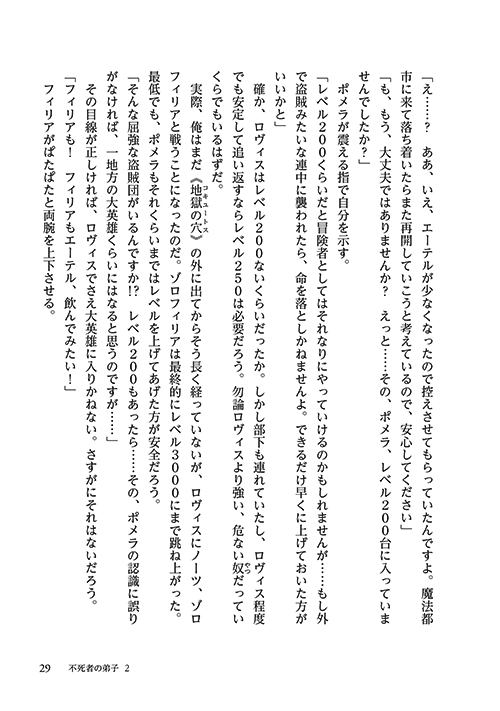 「え……？　ああ、いえ、エーテルが少なくなったので控えさせてもらっていたんですよ。魔法都
市に来て落ち着いたらまた再開していこうと考えているので、安心してください」
「も、もう、大丈夫ではありませんか？　えっと……その、ポメラ、レベル２００台に入っていま
せんでしたか？」
　ポメラが震える指で自分を示す。
「レベル２００くらいだと冒険者としてはそれなりにやっていけるのかもしれませんが……もし外
で盗賊みたいな連中に襲われたら、命を落としかねませんよ。できるだけ早くに上げておいた方が
いいかと」
　確か、ロヴィスはレベル２００ないくらいだったか。しかし部下も連れていたし、ロヴィス程度
でも安定して追い返すならレベル２５０は必要だろう。勿論ロヴィスより強い、危ない奴だってい
やつ
くらでもいるはずだ。
　実際、俺はまだ《地獄の穴》の外に出てからそう長く経っていないが、ロヴィスにノーツ、ゾロ
コキュートス
フィリアと戦うことになったのだ。ゾロフィリアは最終的にレベル３０００にまで跳ね上がった。
最低でも、ポメラもそれくらいまではレベルを上げてあげた方が安全だろう。
「そんな屈強な盗賊団がいるんですか!?　レベル２００もあったら……その、ポメラの認識に誤り
がなければ、一地方の大英雄くらいにはなると思うのですが……」
　その目線が正しければ、ロヴィスでさえ大英雄に入りかねない。さすがにそれはないだろう。
「フィリアも！　フィリアもエーテル、飲んでみたい！」
　フィリアがぱたぱたと両腕を上下させる。
29　不死者の弟子 2